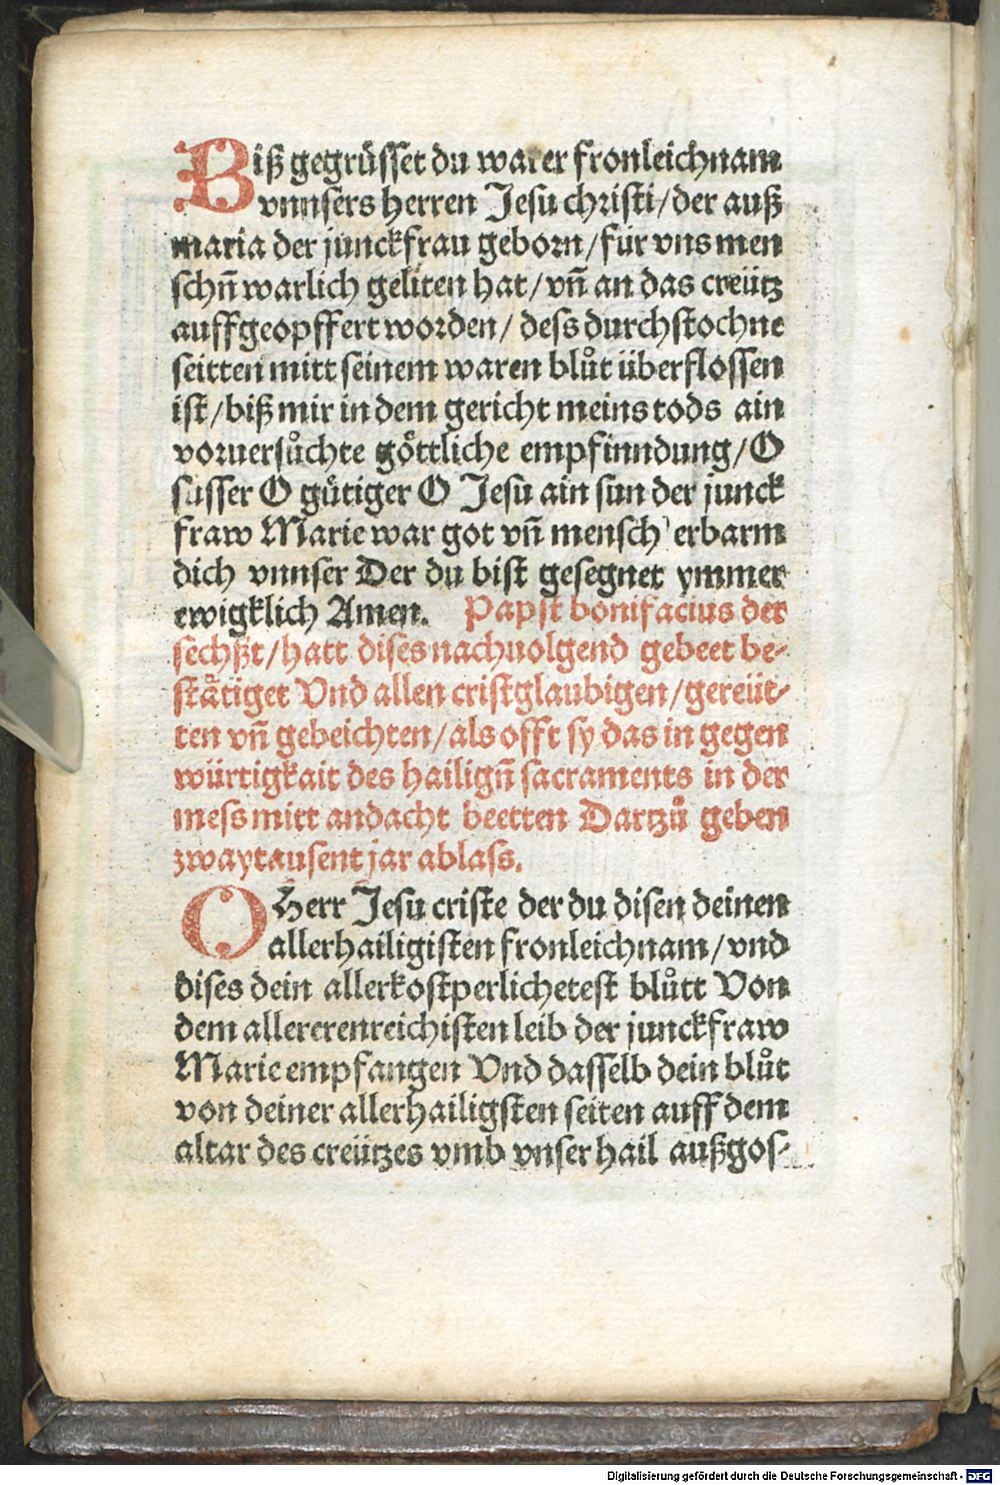 Biß gegrüsset du warer fronleichnam
vnnsers herren Jesu christi/der auß
maria der junckfrau geborn/für vns men
schn̄ warlich geliten hat/vn̄ an das creütz
auffgeopffert worden/ dess durchstochne
seitten mitt seinem waren blůt überflossen
ist/biß mir in dem gericht meins tods ain
voruersůchte göttliche empfinndung/O
susser O gütiger O Jesu ain sun der junck
fraw Marie war got vn̄ mensch erbarm
dich vnnser Der du bist gesegnet ymmer
ewigklich Amen. Papst bonifacius der
sechßt/hatt dises nachuolgend gebeet be-
stätiget Vnd allen cristglaubigen/gereüt-
ten vn̄ gebeichten/als offt sy das in gegen
würtigkait des hailign̄ sacraments in der
mess mitt andacht beetten Dartzů geben
zwaytausent jar ablass.
O Herr Jesu criste der du disen deinen
allerhailigisten fronleichnam/vnd
dises dein allerkostperlichetest blůtt Von
dem allererenreichisten leib der junckfraw
Marie empfangen Vnd dasselb dein blůt
von deiner allerhailigsten seiten auff dem
altar des creützes vmb vnser hail außgos-
Digitalisierung gefördert durch die Deutsche Forschungsgemeinschaft - DFG